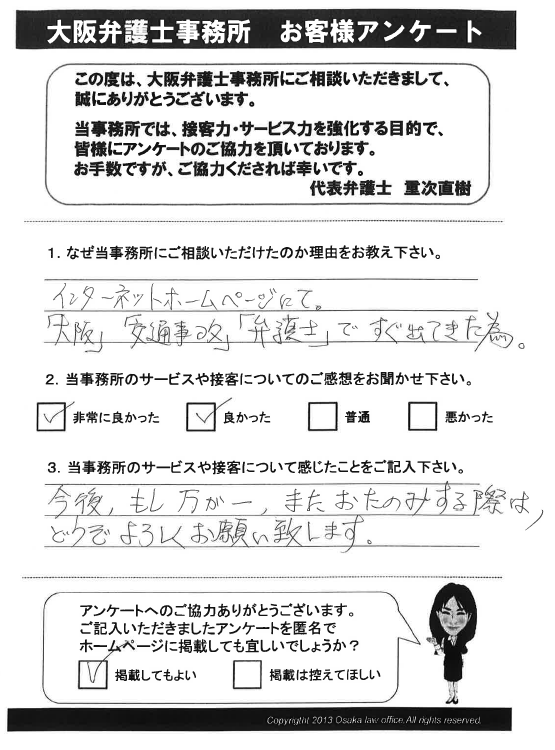 大阪弁護士事務所　お客様アンケート
この度は、大阪弁護士事務所にご相談いただきまして、
誠にありがとうございます。
当事務所では、接客力・サービス力を強化する目的で、
皆様にアンケートのご協力を頂いております。
お手数ですが、ご協力くだされば幸いです。
代表弁護士　重次直樹
1．なぜ当事務所にご相談いただけたのか理由をお教え下さい。
インターネットホームページにて。
「大阪」「交通事故」「弁護士」ですぐ出てきた為。
2．当事務所のサービスや接客についてのご感想をお聞かせ下さい。
非常に良かった　良かった　普通　悪かった
3．当事務所のサービスや接客について感じたことをご記入下さい。
今後，もし万が一，またおたのみする際は，
どうぞよろしくお願い致します。
アンケートへのご協力ありがとうございます。
ご記入いただきましたアンケートを匿名で
ホームページに掲載しても宜しいでしょうか？
掲載してもよい　掲載は控えてほしい
Copyrigtht 2013 Osaka law office.All rights reserved.